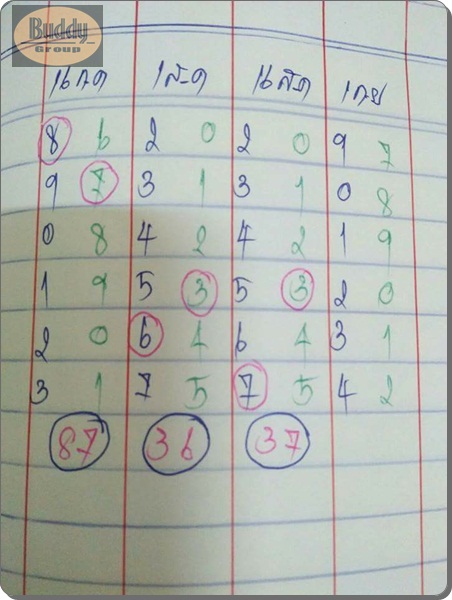 Buddy_
Group
8 6 2 0 2 0 9 7
9 7 3 1 3 1 0 8
0 8 4 2 4 2 1 9
1 9 5 3 5 3 2 0
2 0 6 4 6 4 3 1
3 1 7 5 7 5 4 2
87 36 37